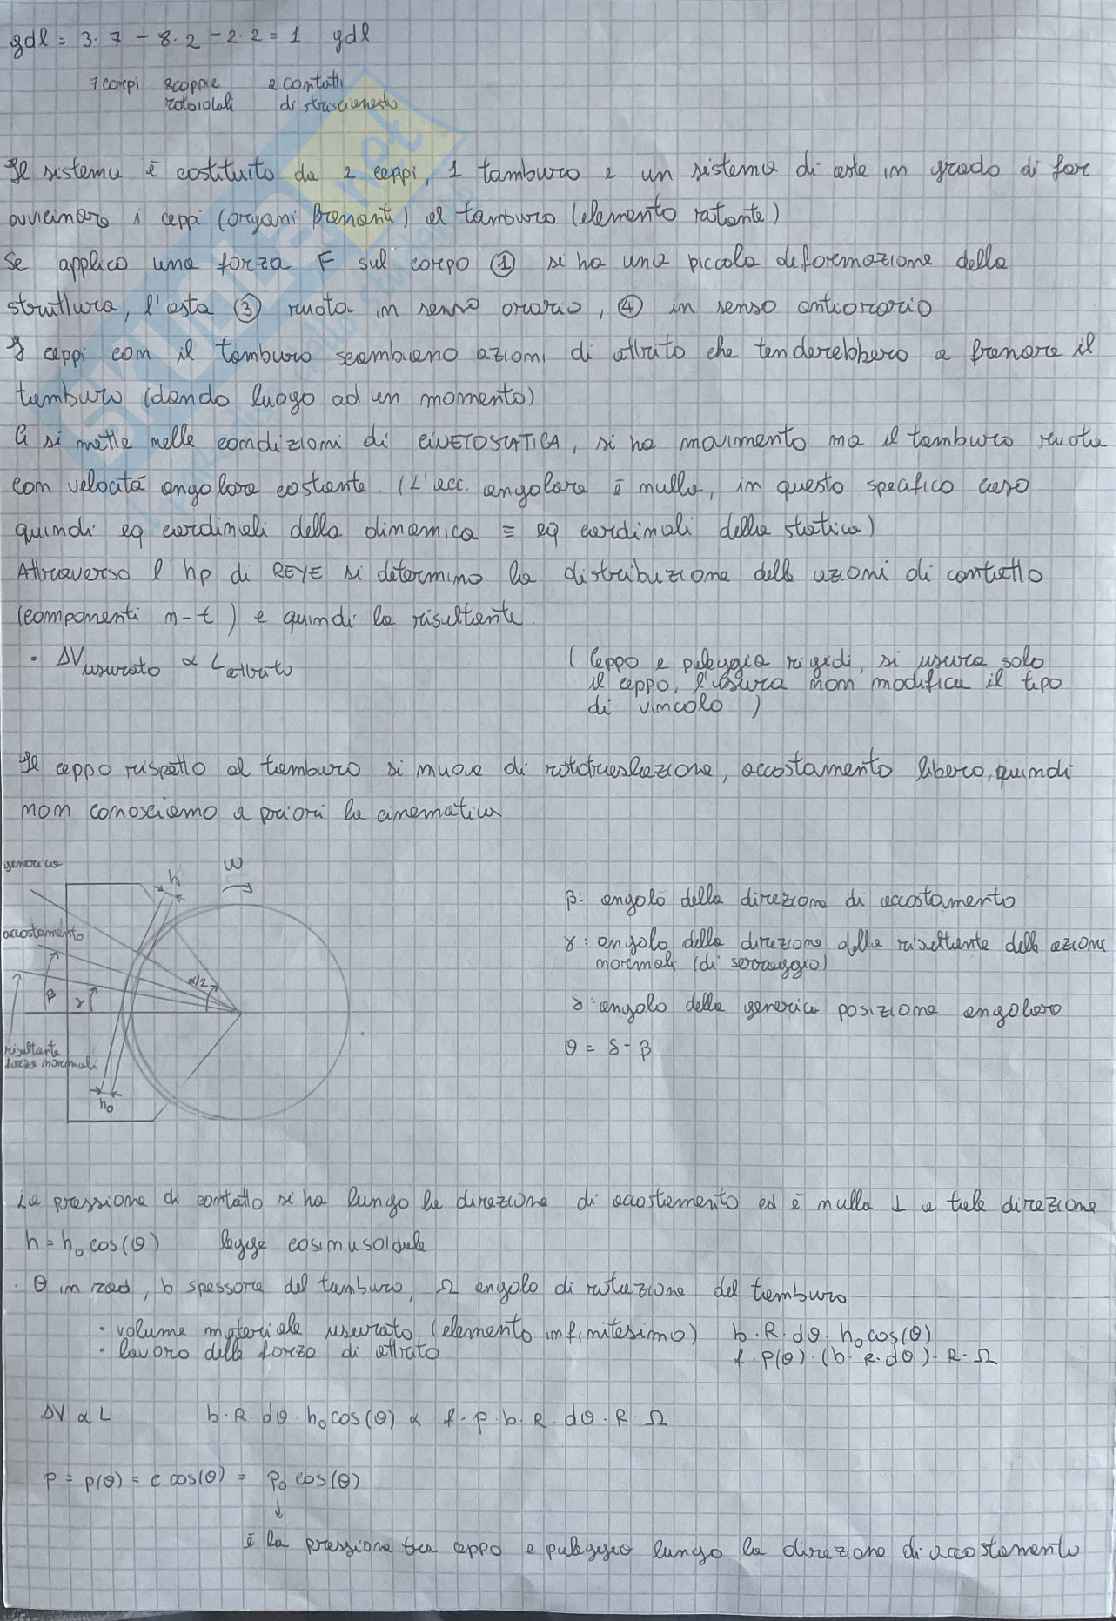 gdl = 3·7 - 8·2 - 2·2 = 1 gdl
7 corpi 8 coppie 2 contatti
rotoidali di strisciamento
Il sistema è costituito da 2 ceppi, 1 tamburo e un sistema di aste in grado di far
avvicinare i ceppi (organi frenanti) al tamburo (elemento rotante)
Se applico una forza F sul corpo ① si ha una piccola deformazione della
struttura, l'asta ③ ruota in senso orario, ④ in senso antiorario
I ceppi con il tamburo scambiano azioni di attrito che tenderebbero a frenare il
tamburo (dando luogo ad un momento)
Ci si mette nelle condizioni di CINETOSTATICA, si ha movimento ma il tamburo ruota
con velocità angolare costante. (L'acc. angolare è nulla, in questo specifico caso
quindi eq cardinali della dinamica ≡ eq cardinali della statica)
Attraverso l'hp di REYE si determina la distribuzione delle azioni di contatto
(componenti n-t) e quindi la risultente.
· ΔVusurato ∝ Lattrato (Ceppo e puleggia rigidi, si usura solo
il ceppo, l'usura non modifica il tipo
di vincolo)
Il ceppo rispetto al tamburo si muove di rototraslazione, accostamento libero, quindi
non conosciamo a priori la cinematica
generica ω
h
accostamento
β: angolo della direzione di accostamento
γ: angolo della direzione della risultente delle azioni
normali (di serraggio)
δ: angolo della generica posizione angolare
θ = δ - β
α/2
β γ
risultante
forze normali
h₀
La pressione di contatto si ha lungo la direzione di accostamento ed è nulla ⊥ a tale direzione
h = h₀ cos(θ) legge cosinusoidale
· θ in rad, b spessore del tamburo, Ω angolo di rotazione del tamburo
· volume materiale usurato (elemento infinitesimo) b·R·dθ·h₀cos(θ)
· lavoro della forza di attrito f·p(θ)·(b·R·dθ)·R·Ω
ΔV ∝ L b·R dθ·h₀cos(θ) ∝ f·p·b·R·dθ·R·Ω
p = p(θ) = c cos(θ) = p₀ cos(θ)
↓
è la pressione tra ceppo e puleggia lungo la direzione di accostamento